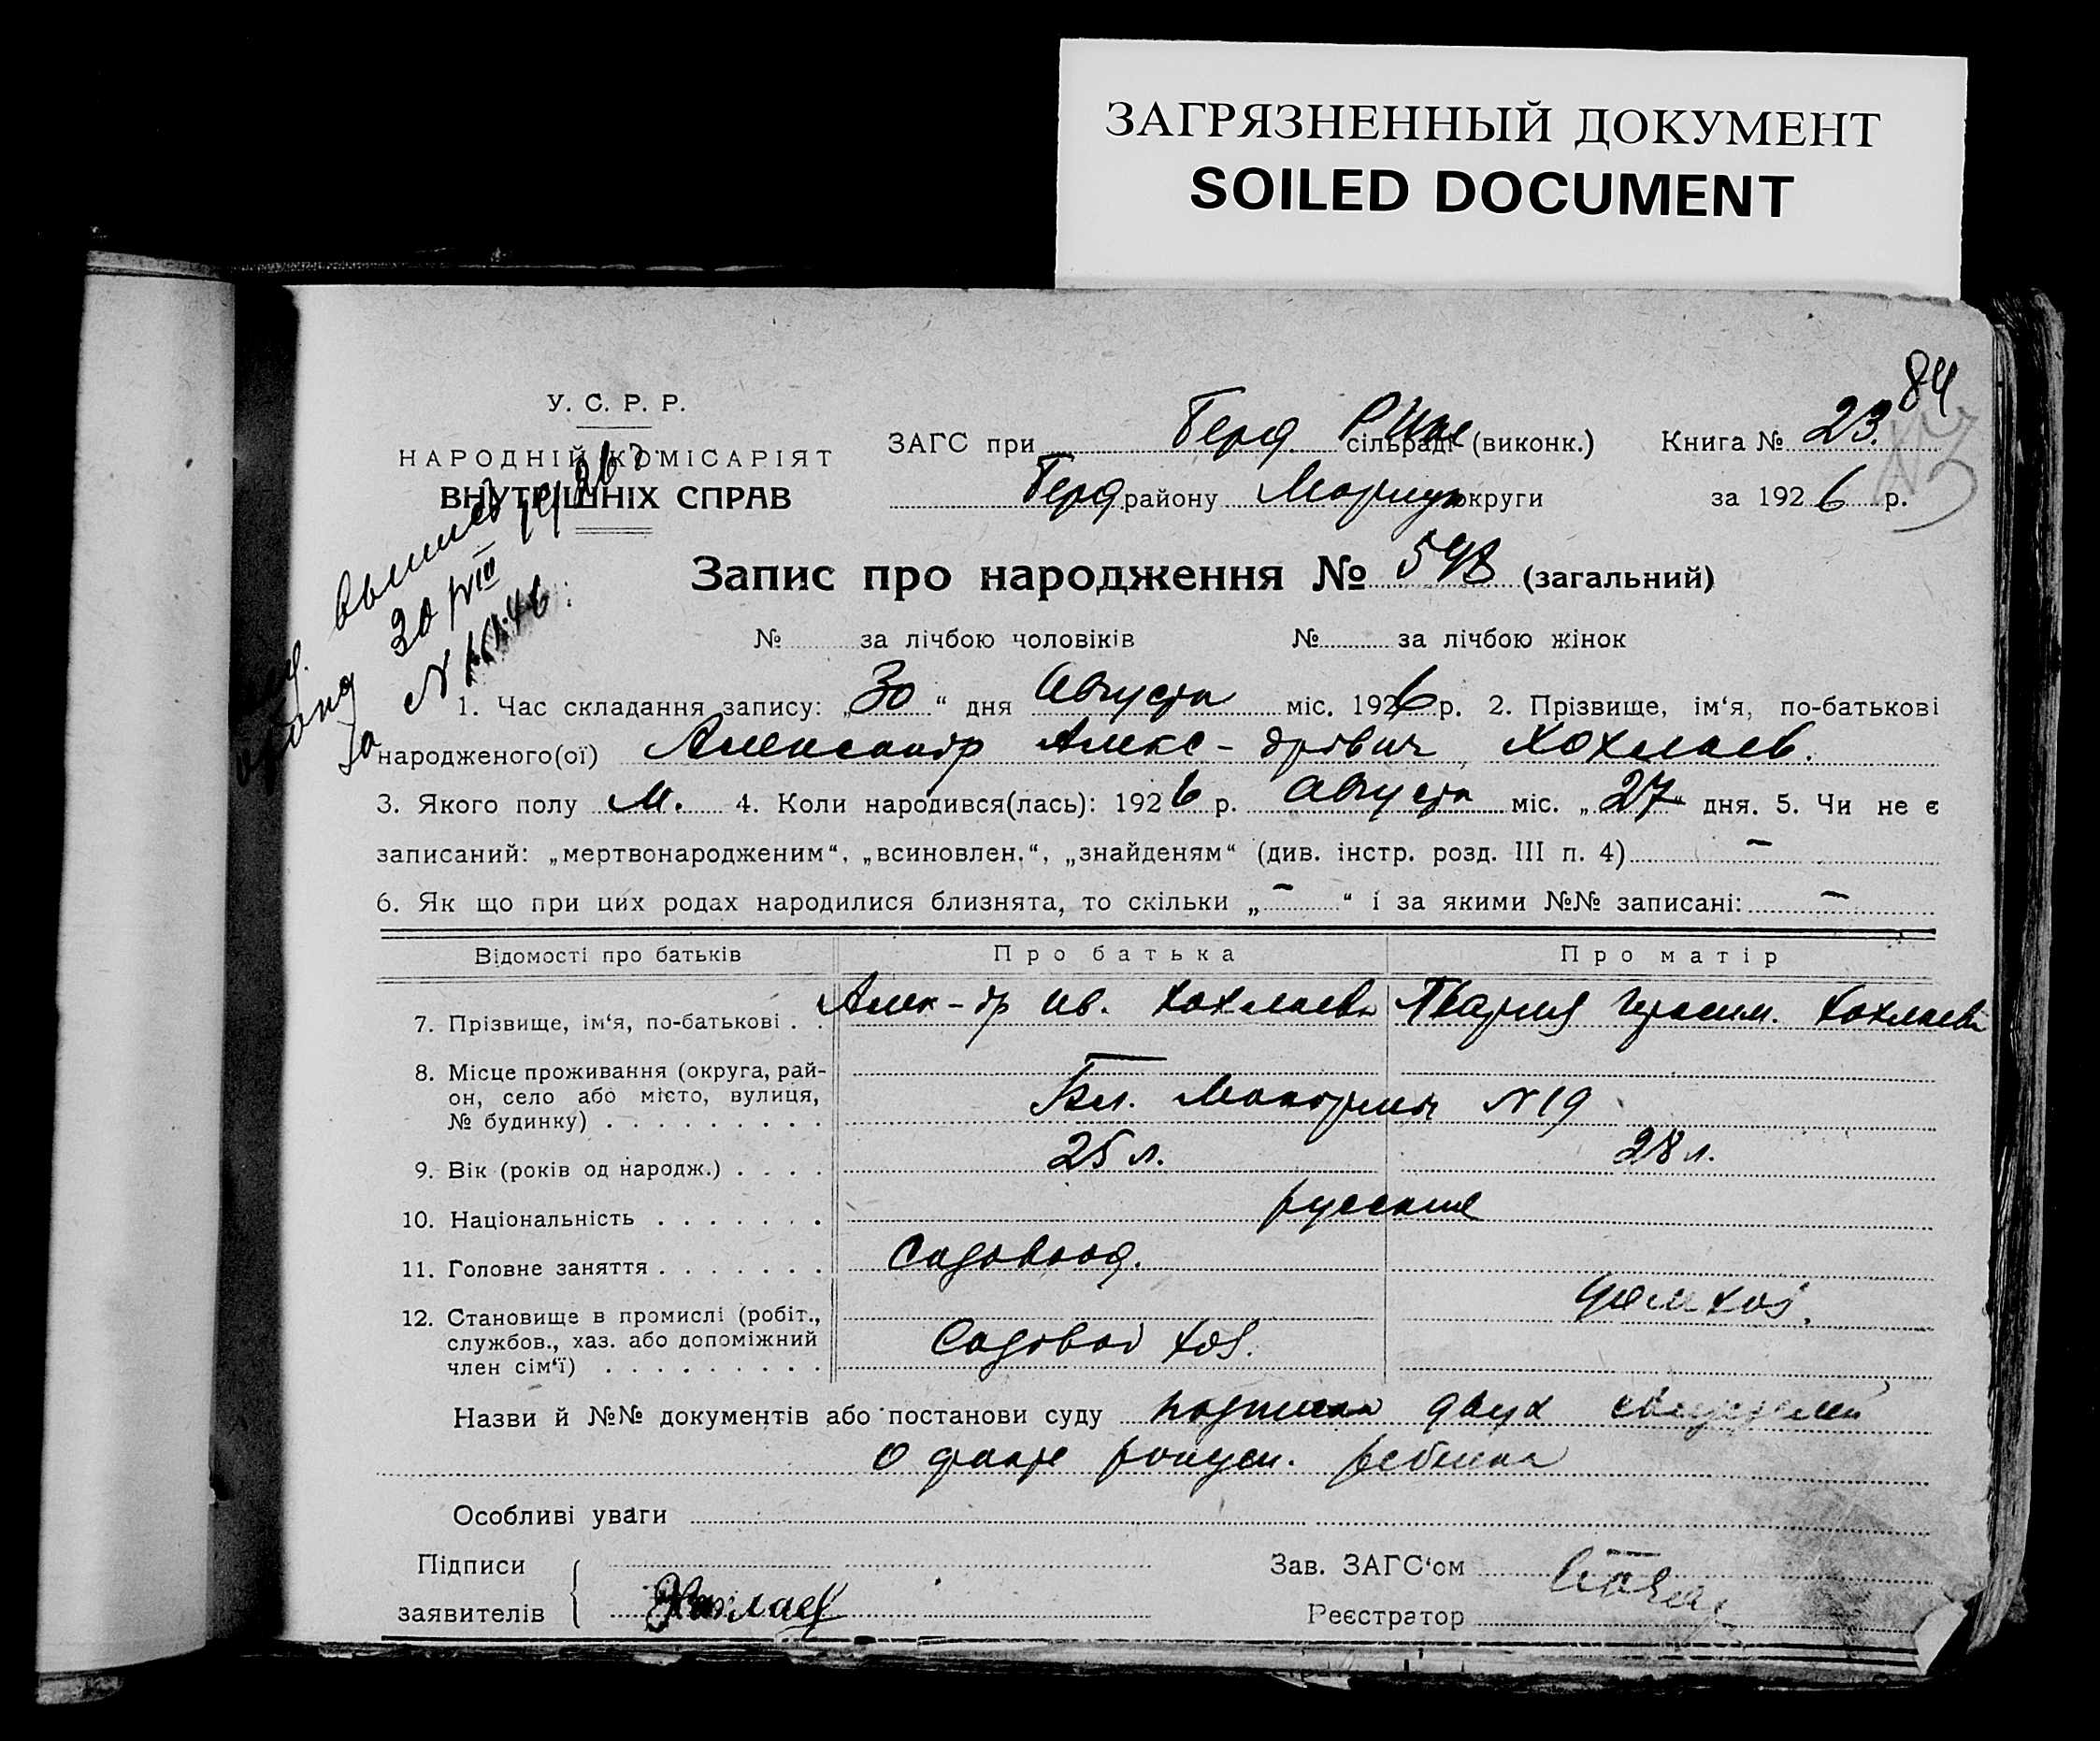 ЗАГРЯЗНЕННЫЙ ДОКУМЕНТ
SOILED DOCUMENT
84
У. С. Р. Р.
НАРОДНІЙ КОМІСАРІЯТ
ВНУТРІШНІХ СПРАВ
ЗАГС при Берд. РИКе сільраді (виконк.) Книга № 23.
Берд району Мариуп округи за 1926 р.
Запис про народження № 548 (загальний)
№ за лічбою чоловіків № за лічбою жінок
1. Час складання запису: „30“ дня Августа міс. 1926 р. 2. Прізвище, ім‘я, по-батькові
народженого(ої) Александр Алекс-дрович Хохлаев.
3. Якого полу м. 4. Коли народився(лась): 1926 р. Августа міс. „27“ дня. 5. Чи не є
записаний: „мертвонародженим“, „всиновлен.“, „знайденям“ (див. інстр. розд. III п. 4) –
6. Як що при цих родах народилися близнята, то скільки „–“ і за якими №№ записані: –
Відомості про батьків Про батька Про матір
7. Прізвище, ім‘я, по-батькові . . Алек-др Ив. Хохлаев Мария Герасим. Хохлаева
8. Місце проживання (округа, рай-
он, село або місто, вулиця,
№ будинку) . . . . . . . . . N 19
9. Вік (років од народж.) . . . . 25 л. 28 л.
10. Національність . . . . . . . русские
11. Головне заняття . . . . . . . Садовод.
дом хоз.
12. Становище в промислі (робіт.,
службов., хаз. або допоміжний
член сім‘ї) . . . . . . . . . Садовод хоз.
Назви й №№ документів або постанови суду подписка двух свидетелей
о факте рожден. ребенка
Особливі уваги
Підписи
заявителів Хохлаев
Зав. ЗАГС‘ом
Реєстратор